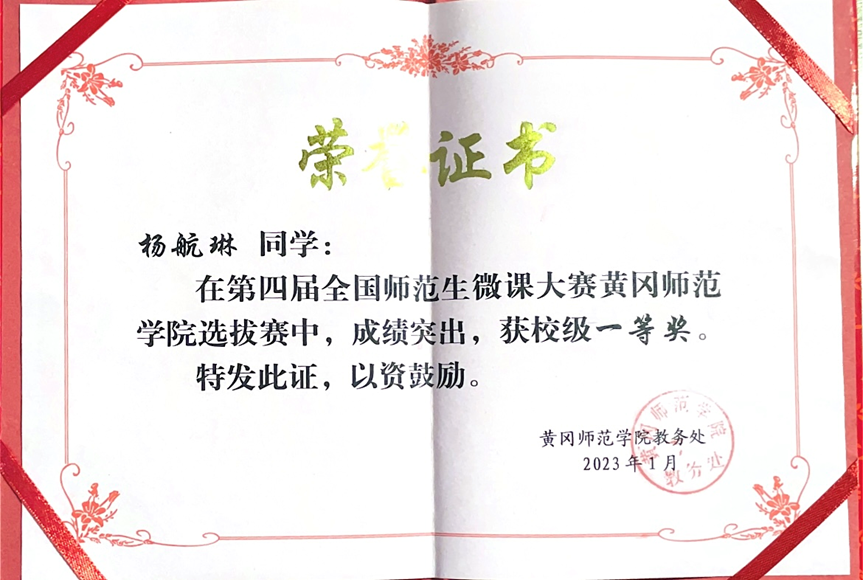 荣誉证书
杨航琳 同学：
在第四届全国师范生微课大赛黄冈师范
学院选拔赛中，成绩突出，获校级一等奖。
特发此证，以资鼓励。
黄冈师范学院教务处
2023年1月
黄冈师范学院
教务处